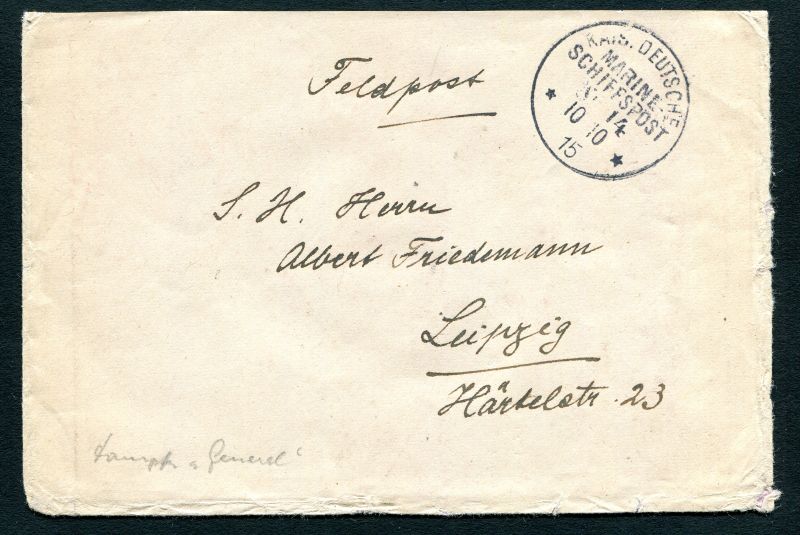 Feldpost
KAIS. DEUTSCHE
MARINE-
SCHIFFSPOST
No 14
10 10
15
S. H. Herrn
Albert Friedemann
Leipzig
Härtelstr. 23
"General"